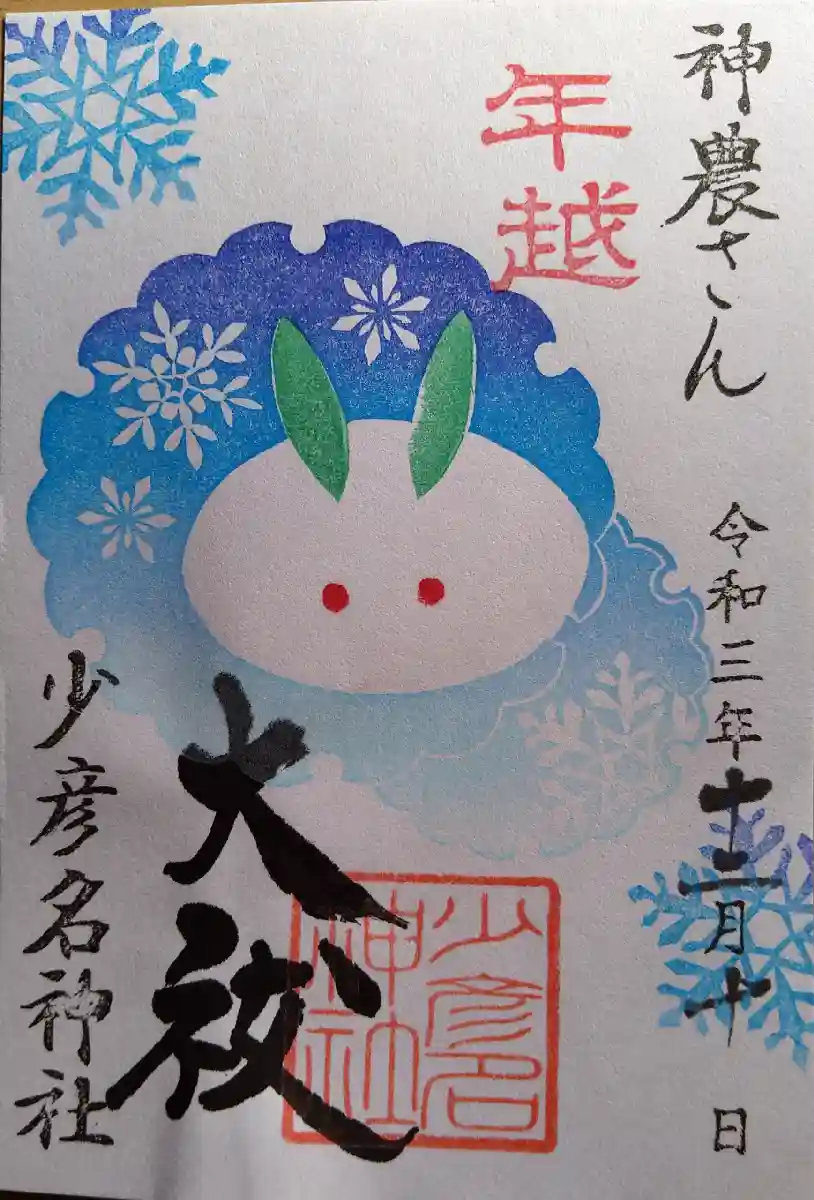 神農さん
令和三年十二月十日
年越
大祓
少彦名神社
少彦名
神社